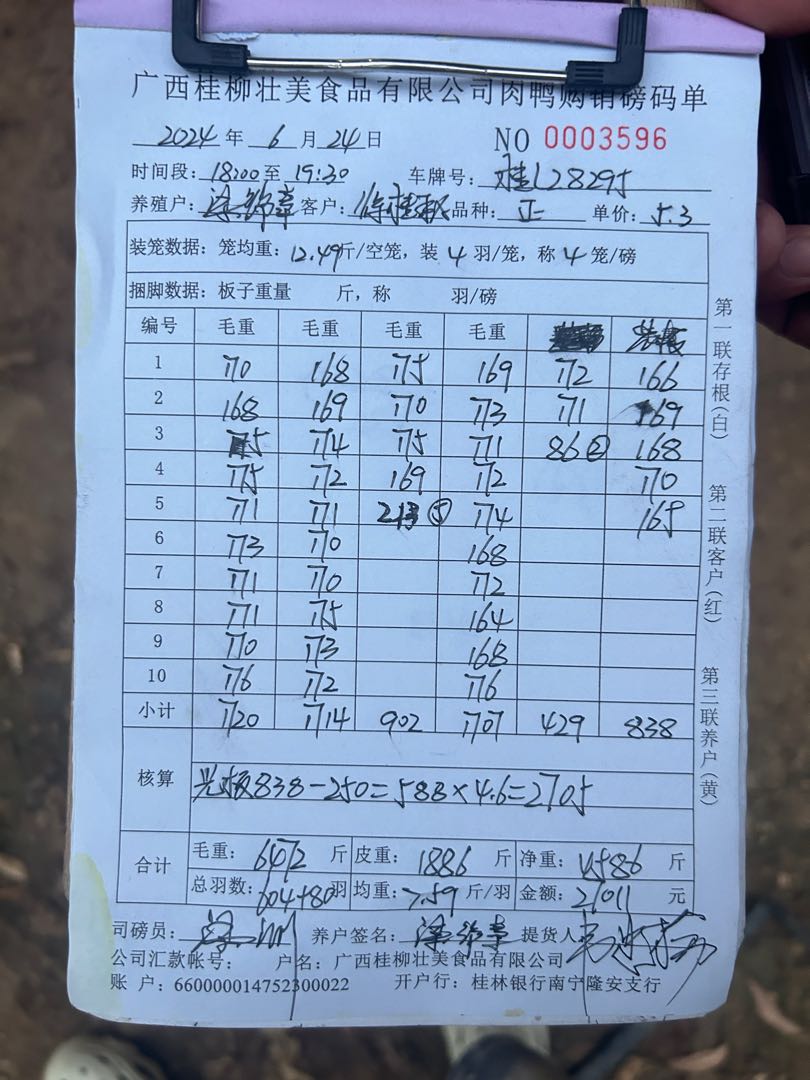 广西桂柳壮美食品有限公司肉鸭购销磅码单
2024 年 6 月 24 日 NO 0003596
时间段: 18:00 至 19:30 车牌号: 桂L28295
养殖户: 客户: 品种: 正 单价: 5.3
装笼数据: 笼均重: 12.49斤/空笼, 装 4 羽/笼, 称 4 笼/磅
捆脚数据: 板子重量 斤, 称 羽/磅
编号 毛重 毛重 毛重 毛重
1 170 168 175 169 172 166
2 168 169 170 173 171 169
3 175 174 175 171 86② 168
4 175 172 169 172 170
5 171 171 213⑤ 174 165
6 173 170 168
7 171 170 172
8 171 175 164
9 170 173 168
10 176 172 176
小计 1720 1714 902 1707 429 838
核算 838-250=588×4.6=2705
合计 毛重: 6472 斤 皮重: 1886 斤 净重: 4586 斤
总羽数: 604+80羽 均重: 7.59 斤/羽 金额: 21011 元
司磅员: 养户签名: 提货人
公司汇款帐号: 户名: 广西桂柳壮美食品有限公司
账 户: 660000014752300022 开户行: 桂林银行南宁隆安支行
第一联存根(白)
第二联客户(红)
第三联养户(黄)